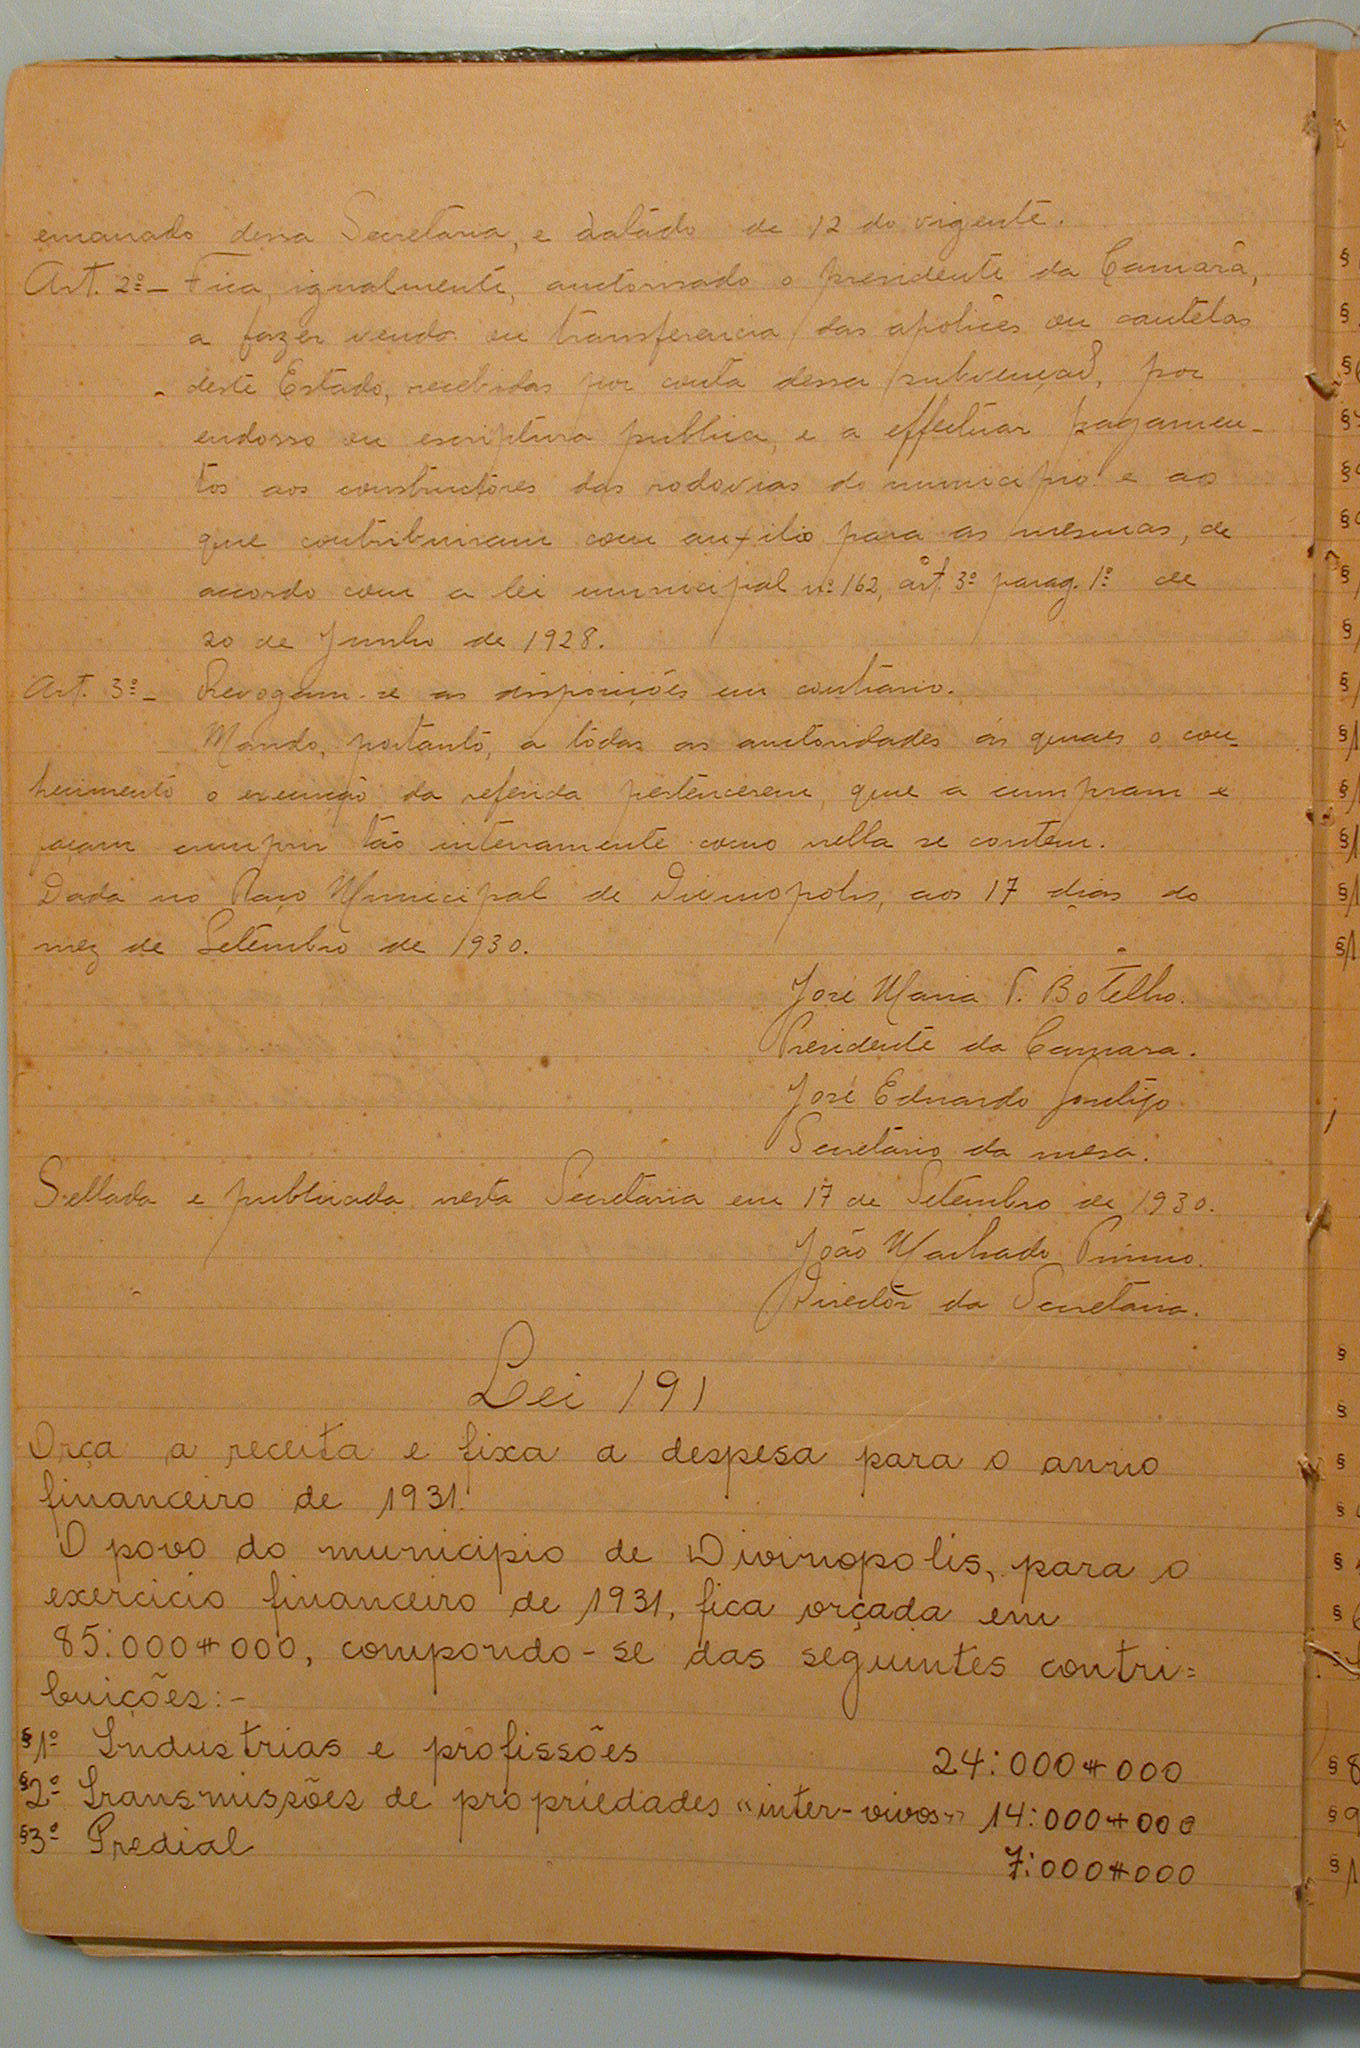 emanado dessa Secretaria, e datado de 12 do vigente.
Art. 2º - Fica, igualmente, auctorisado o presidente da Camara,
a fazer venda ou transferencia das apolices ou cautelas
deste Estado, recebidas por conta dessa subvenção, por
endosso ou escriptura publica, e a effectuar pagamen-
tos aos constructores das rodovias do municipio e ao
que contribuiram com auxilio para as mesmas, de
accordo com a lei municipal nº 162, art. 3º parag. 1º de
20 de Junho de 1928.
Art. 3º - Revogam-se as disposições em contrario.
Mando, portanto, a todas as auctoridades ás quaes o con-
hecimento e execução da referida pertencerem, que a cumpram e
façam cumprir tão inteiramente como nella se contem.
Dada no Paço Municipal de Divinopolis, aos 17 dias do
mez de Setembro de 1930.
José Maria P. Botelho.
Presidente da Camara.
José Eduardo
Secretario da mesa.
Sellada e publicada nesta Secretaria em 17 de Setembro de 1930.
João Machado Primo.
Director da Secretaria.
Lei 191
Orça a receita e fixa a despesa para o anno
financeiro de 1931.
O povo do municipio de Divinopolis, para o
exercicio financeiro de 1931, fica orçada em
85:000#000, compondo-se das seguintes contri=
buições:-
§1º Industrias e profissões 24:000#000
§2º Transmissões de propriedades "inter-vivos" 14:000#000
§3º Predial 7:000#000